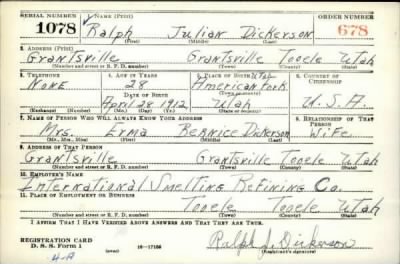 SERIAL NUMBER 1. NAME (Print) ORDER NUMBER
1078 Ralph Julian Dickerson 678
(First) (Middle) (Last)
2. ADDRESS (Print)
Grantsville Grantsville Tooele Utah
(Number and street or R. F. D. number) (Town) (County) (State)
3. TELEPHONE 4. AGE IN YEARS 5. PLACE OF BIRTH 6. COUNTRY OF CITIZENSHIP
None 28 Utah American Fork
DATE OF BIRTH (Town or county)
April 28 1912 Utah U. S. A.
(Exchange) (Number) (Mo.) (Day) (Yr.) (State or country)
7. NAME OF PERSON WHO WILL ALWAYS KNOW YOUR ADDRESS 8. RELATIONSHIP OF THAT PERSON
Mrs. Erma Bernice Dickerson Wife
(Mr., Mrs., Miss) (First) (Middle) (Last)
9. ADDRESS OF THAT PERSON
Grantsville Grantsville Tooele Utah
(Number and street or R. F. D. number) (Town) (County) (State)
10. EMPLOYER'S NAME
International Smelting Refining Co.
11. PLACE OF EMPLOYMENT OR BUSINESS
Tooele Tooele Utah
(Number and street or R. F. D. number) (Town) (County) (State)
I AFFIRM THAT I HAVE VERIFIED ABOVE ANSWERS AND THAT THEY ARE TRUE.
REGISTRATION CARD
D. S. S. Form 1 (over) 16—17105 Ralph J. Dickerson
(Registrant's signature)